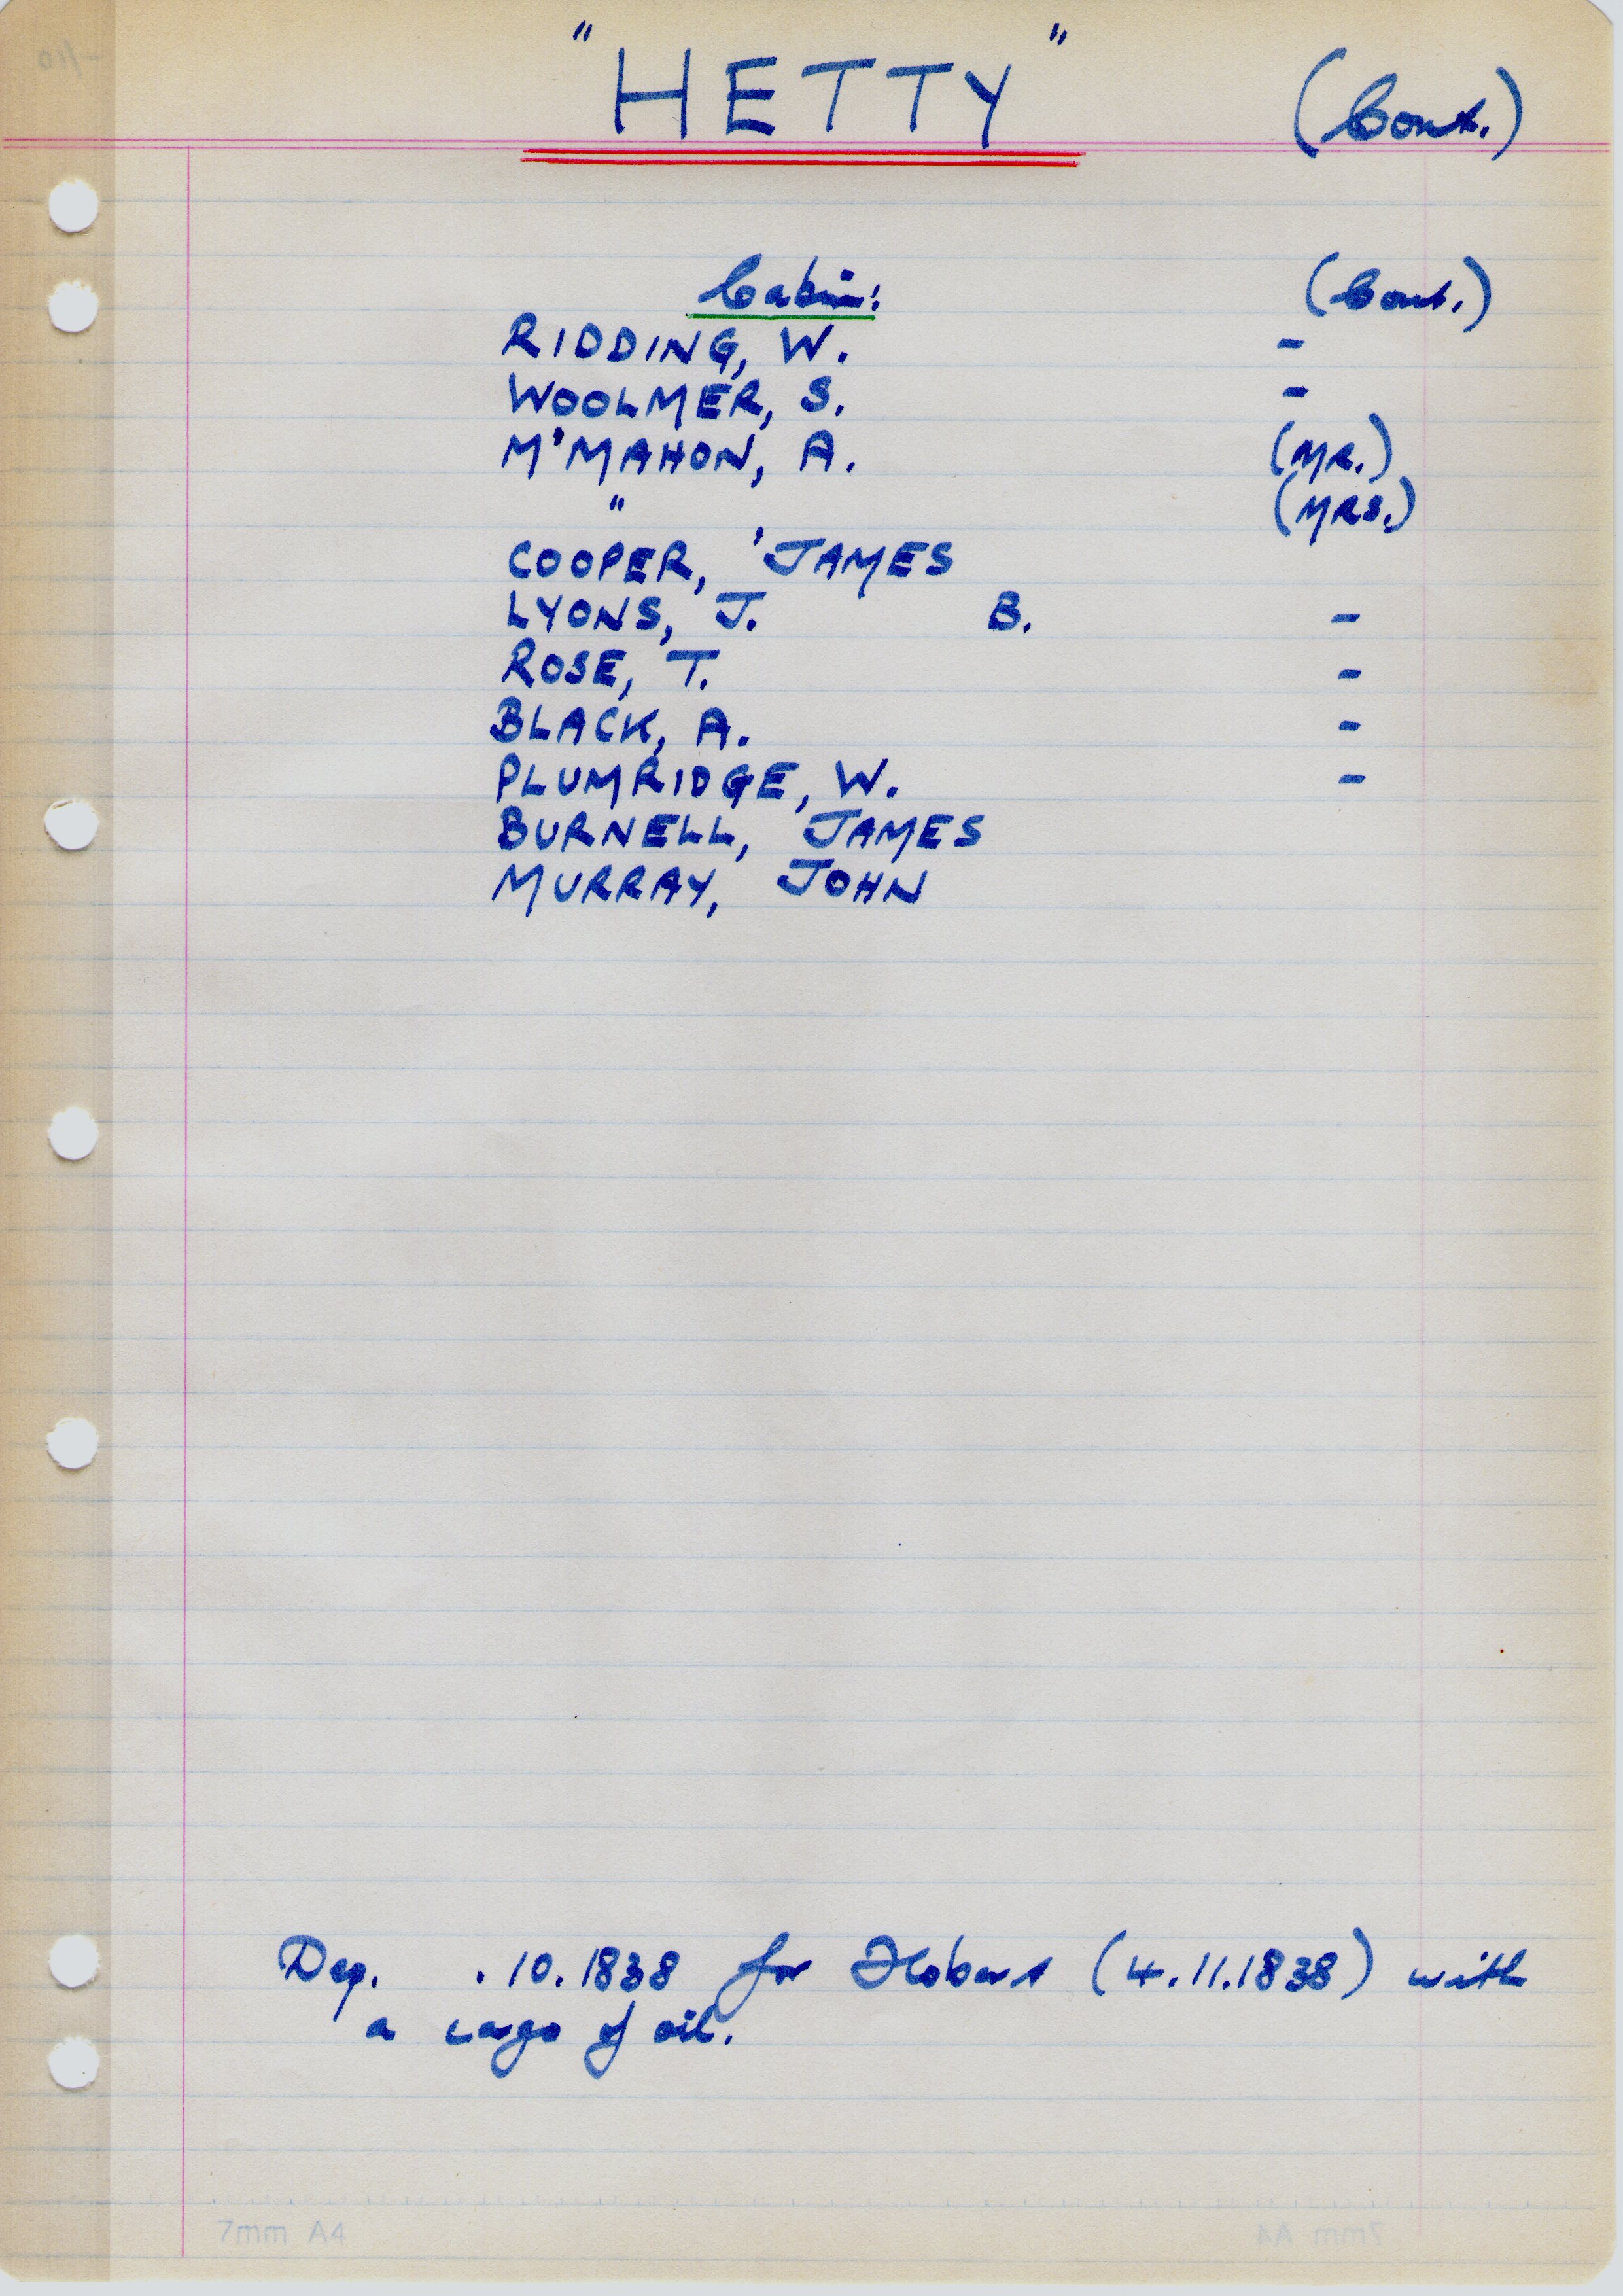 "HETTY" (Cont.)
Cabin: (Cont.)
RIDDING, W. -
WOOLMER, S. -
M'MAHON, A. (MR.)
" (MRS.)
COOPER, 'JAMES
LYONS, J. B. -
ROSE, T. -
BLACK, A. -
PLUMRIDGE, W. -
BURNELL, JAMES
MURRAY, JOHN
Dep. .10.1838 for Hobart (4.11.1838) with
a cargo of oil.
7mm A4